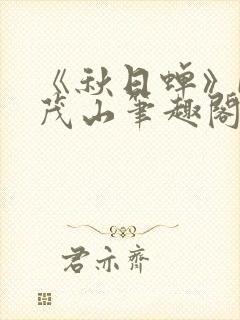 《秋日蝉》
茂山笔趣阁
君亦齐